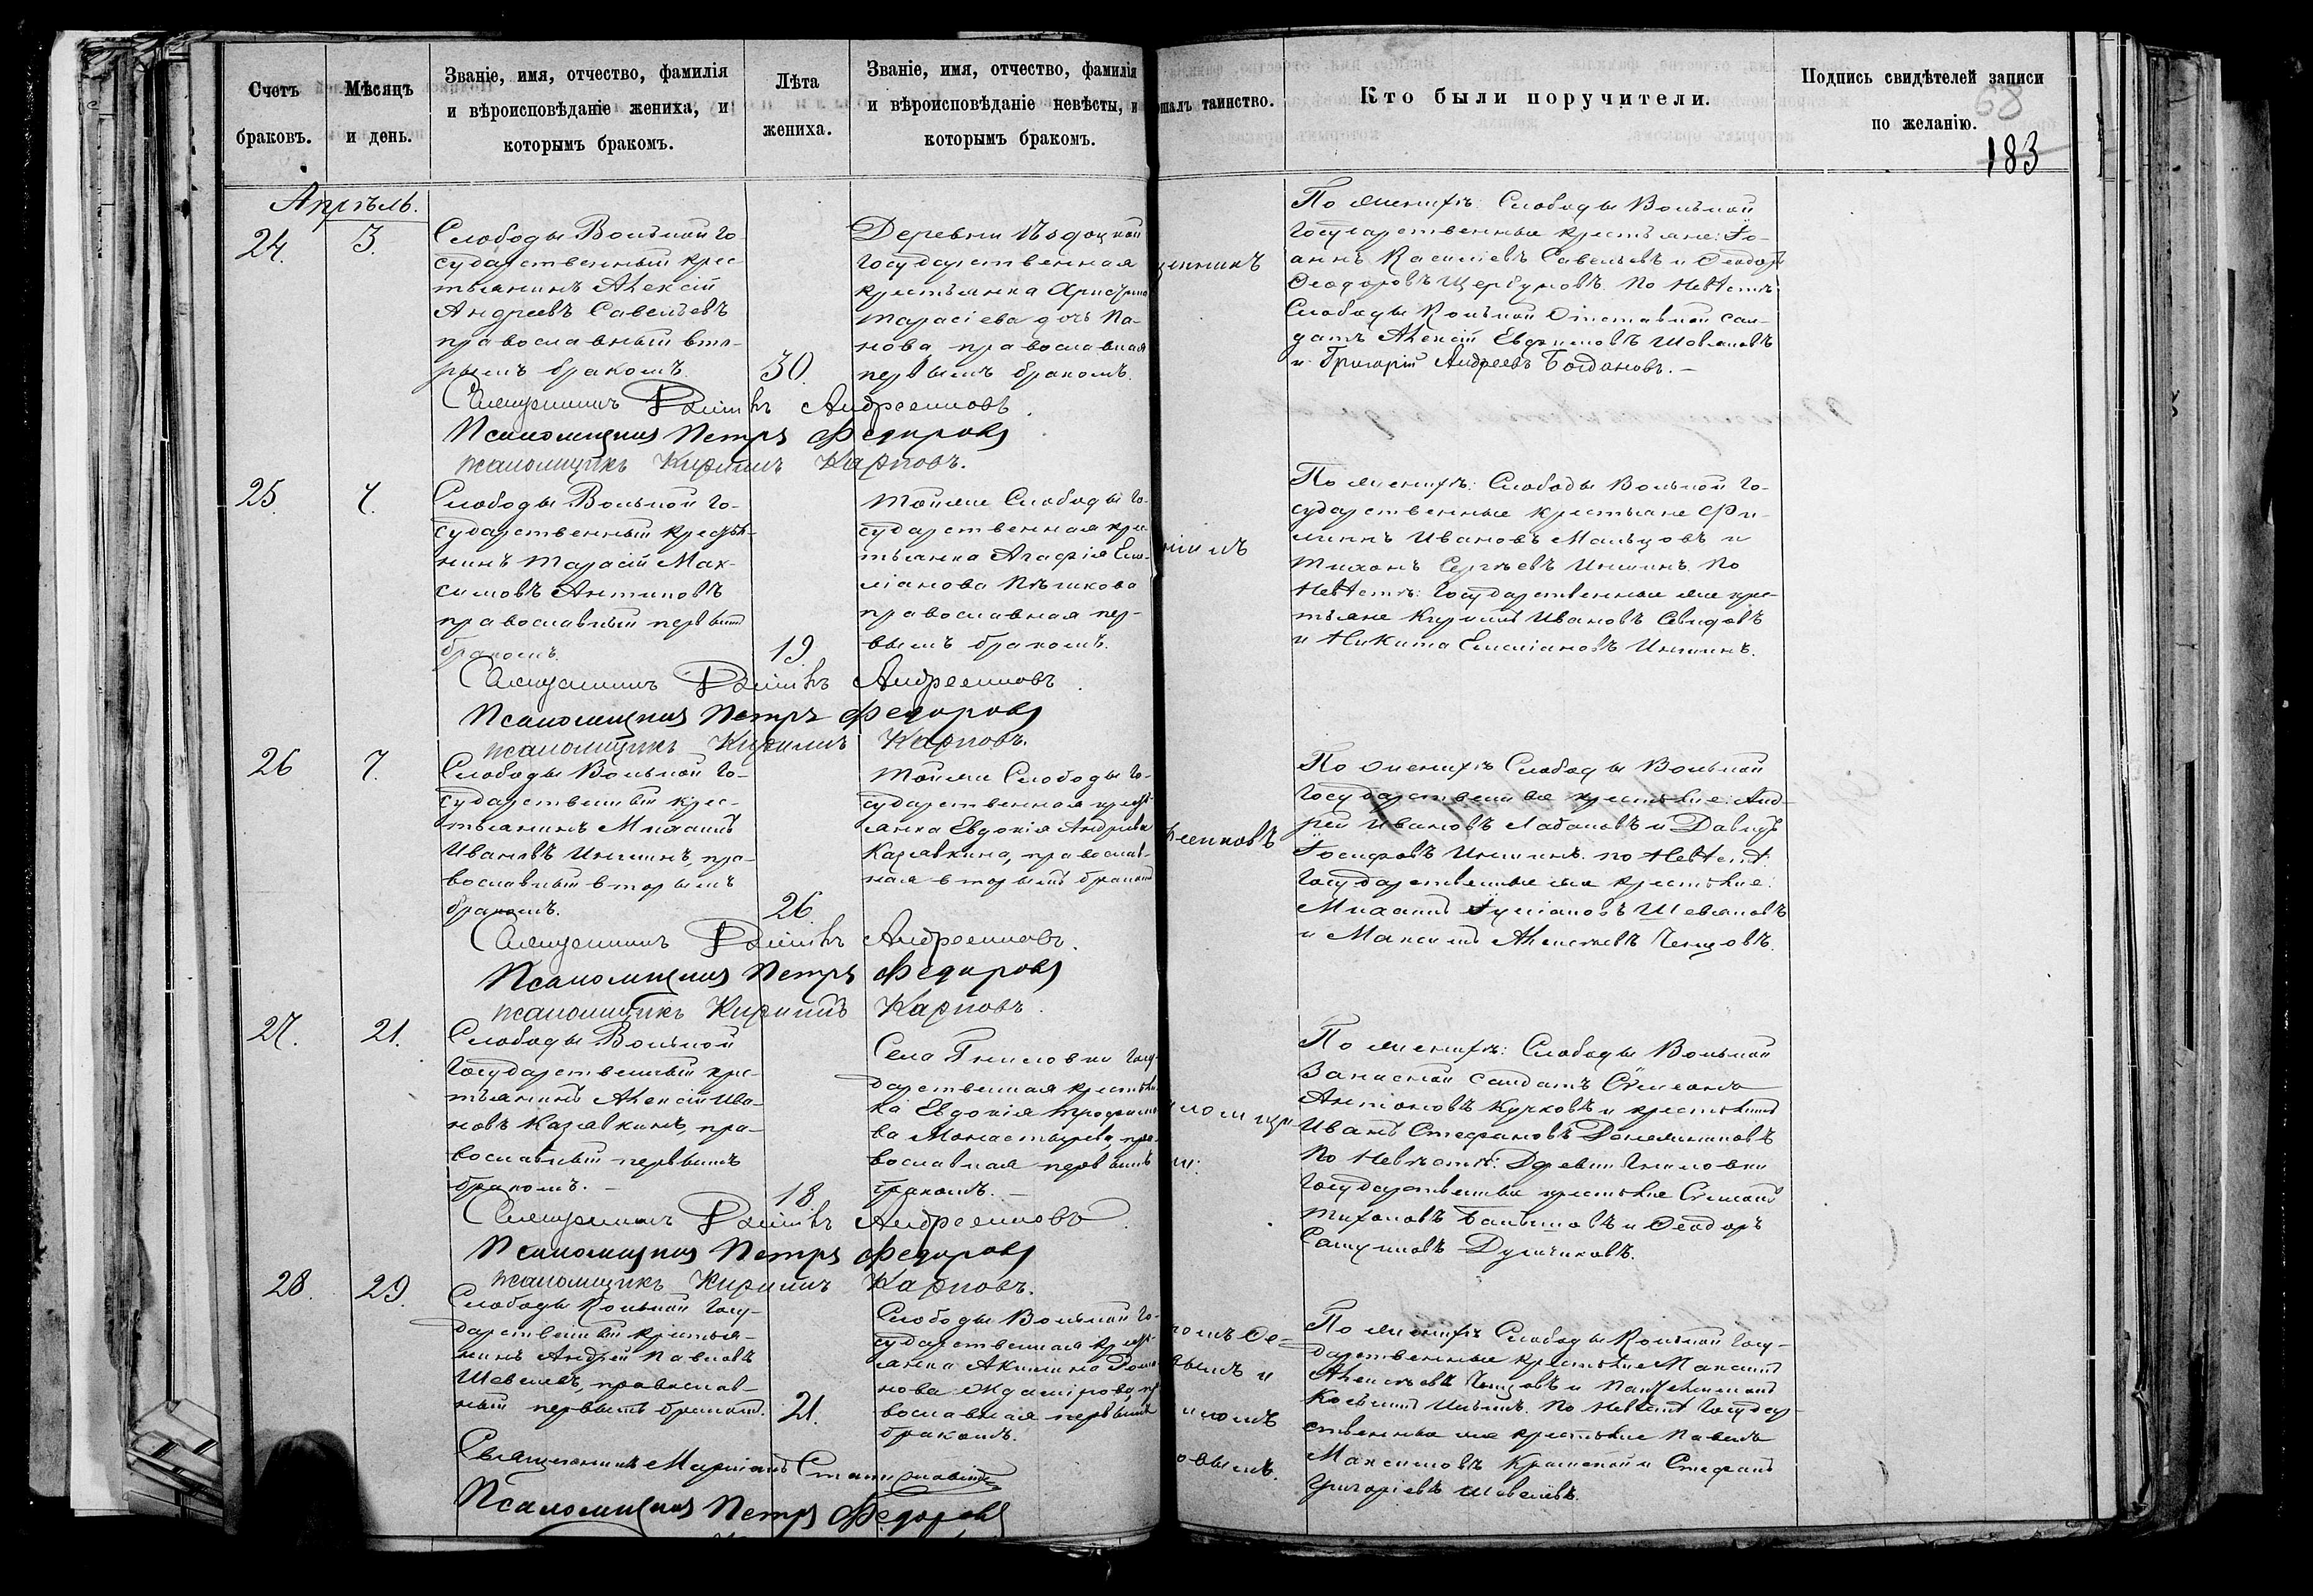 Счетъ
браковъ.
Мѣсяцъ
и день.
Званіе, имя, отчество, фамилія
и вѣроисповѣданіе жениха, и
которымъ бракомъ.
Лѣта
жениха.
Званіе, имя, отчество, фамилія
и вѣроисповѣданіе невѣсты, и
которымъ бракомъ.
таинство.
Кто были поручители.
Подпись свидѣтелей записи
по желанію.
68
183
Апрѣль.
24.
3.
Слободы Вольной Го-
сударственный крес-
тьянинъ Алексій
Андреевъ Савельевъ
православный вто-
рымъ бракомъ.
30.
Деревни
Государственная
крестьянка
Тарасіева дочь Па-
нова православная
первымъ бракомъ.
По женихѣ: Слободы Вольной
Государственные крестьяне: Іо-
аннъ Василіевъ Савельевъ и Феодоръ
Феодоровъ Щербуновъ. По невѣстѣ
Слободы Вольной Отставной сол-
датъ Алексій Евфимовъ
и Григорій Андреевъ Богдановъ. —
Священникъ Андреенковъ.
Псаломщикъ Петръ Федоровъ
псаломщикъ Кириллъ Карповъ.
25.
7.
Слободы Вольной Го-
сударственный крестья-
нинъ Тарасій Мак-
симовъ Антиповъ
православный первымъ
бракомъ.
19.
Тойже Слободы Го-
сударственная крес-
тьянка Агафія Еми-
ліанова Пѣшкова
православная пер-
вымъ бракомъ.
По женихѣ: Слободы Вольной Го-
сударственные крестьяне Фи-
липпъ Ивановъ Мальцовъ и
Тихонъ Сергѣевъ Иншинъ. По
невѣстѣ: Государственные же крес-
тьяне Кириллъ Ивановъ
и Никита Емиліановъ Иншинъ.
Священникъ Андреенковъ.
Псаломщикъ Петръ Федоровъ
псаломщикъ Кириллъ Карповъ.
26
7.
Слободы Вольной Го-
сударственный крес-
тьянинъ Михаилъ
Ивановъ Иншинъ, пра-
вославный вторымъ
бракомъ.
26.
Тойже Слободы Го-
сударственная кресть-
янка Евдокія Андреева
Казявкина, православ-
ная вторымъ бракомъ
По женихѣ Слободы Вольной
Государственные крестьяне: Анд-
рей Ивановъ Лобановъ и Давидъ
Іосифовъ Иншинъ. по невѣстѣ:
Государственные же крестьяне:
Михаилъ Іуліановъ
и Максимъ Алексѣевъ Ченцовъ.
Священникъ Андреенковъ.
Псаломщикъ Петръ Федоровъ
псаломщикъ Кириллъ Карповъ.
27.
21.
Слободы Вольной
Государственный крес-
тьянинъ Алексій Ива-
новъ Казявкинъ, пра-
вославный первымъ
бракомъ. —
18.
Села Гниловки Госу-
дарственная крестьян-
ка Евдокія Трофимо-
ва Монастырева, пра-
вославная первымъ
бракомъ. —
По женихѣ: Слободы Вольной
Запасной солдатъ Симеонъ
Антоновъ Кучковъ и крестьянинъ
Иванъ Стефановъ
По невѣстѣ: Деревни Гниловки
Государственные крестьяне Симеонъ
Тихоновъ и Феодоръ
Священникъ Андреенковъ.
Псаломщикъ Петръ Федоровъ
псаломщикъ Кириллъ Карповъ.
28.
29.
Слободы Вольной Госу-
дарственный крестья-
нинъ Андрей Павловъ
Шевелевъ, православ-
ный первымъ бракомъ.
21.
Слободы Вольной Го-
сударственная кресть-
янка Акилина Рома-
нова пра-
вославная первымъ
бракомъ.
По женихѣ Слободы Вольной Госу-
дарственные крестьяне Максимъ
Алексѣевъ Ченцовъ и Пантелеимонъ
По невѣстѣ Государ-
ственные же крестьяне Павелъ
Максимовъ и Стефанъ
Григоріевъ Шевелевъ.
Священникъ
Псаломщикъ Петръ Федоровъ